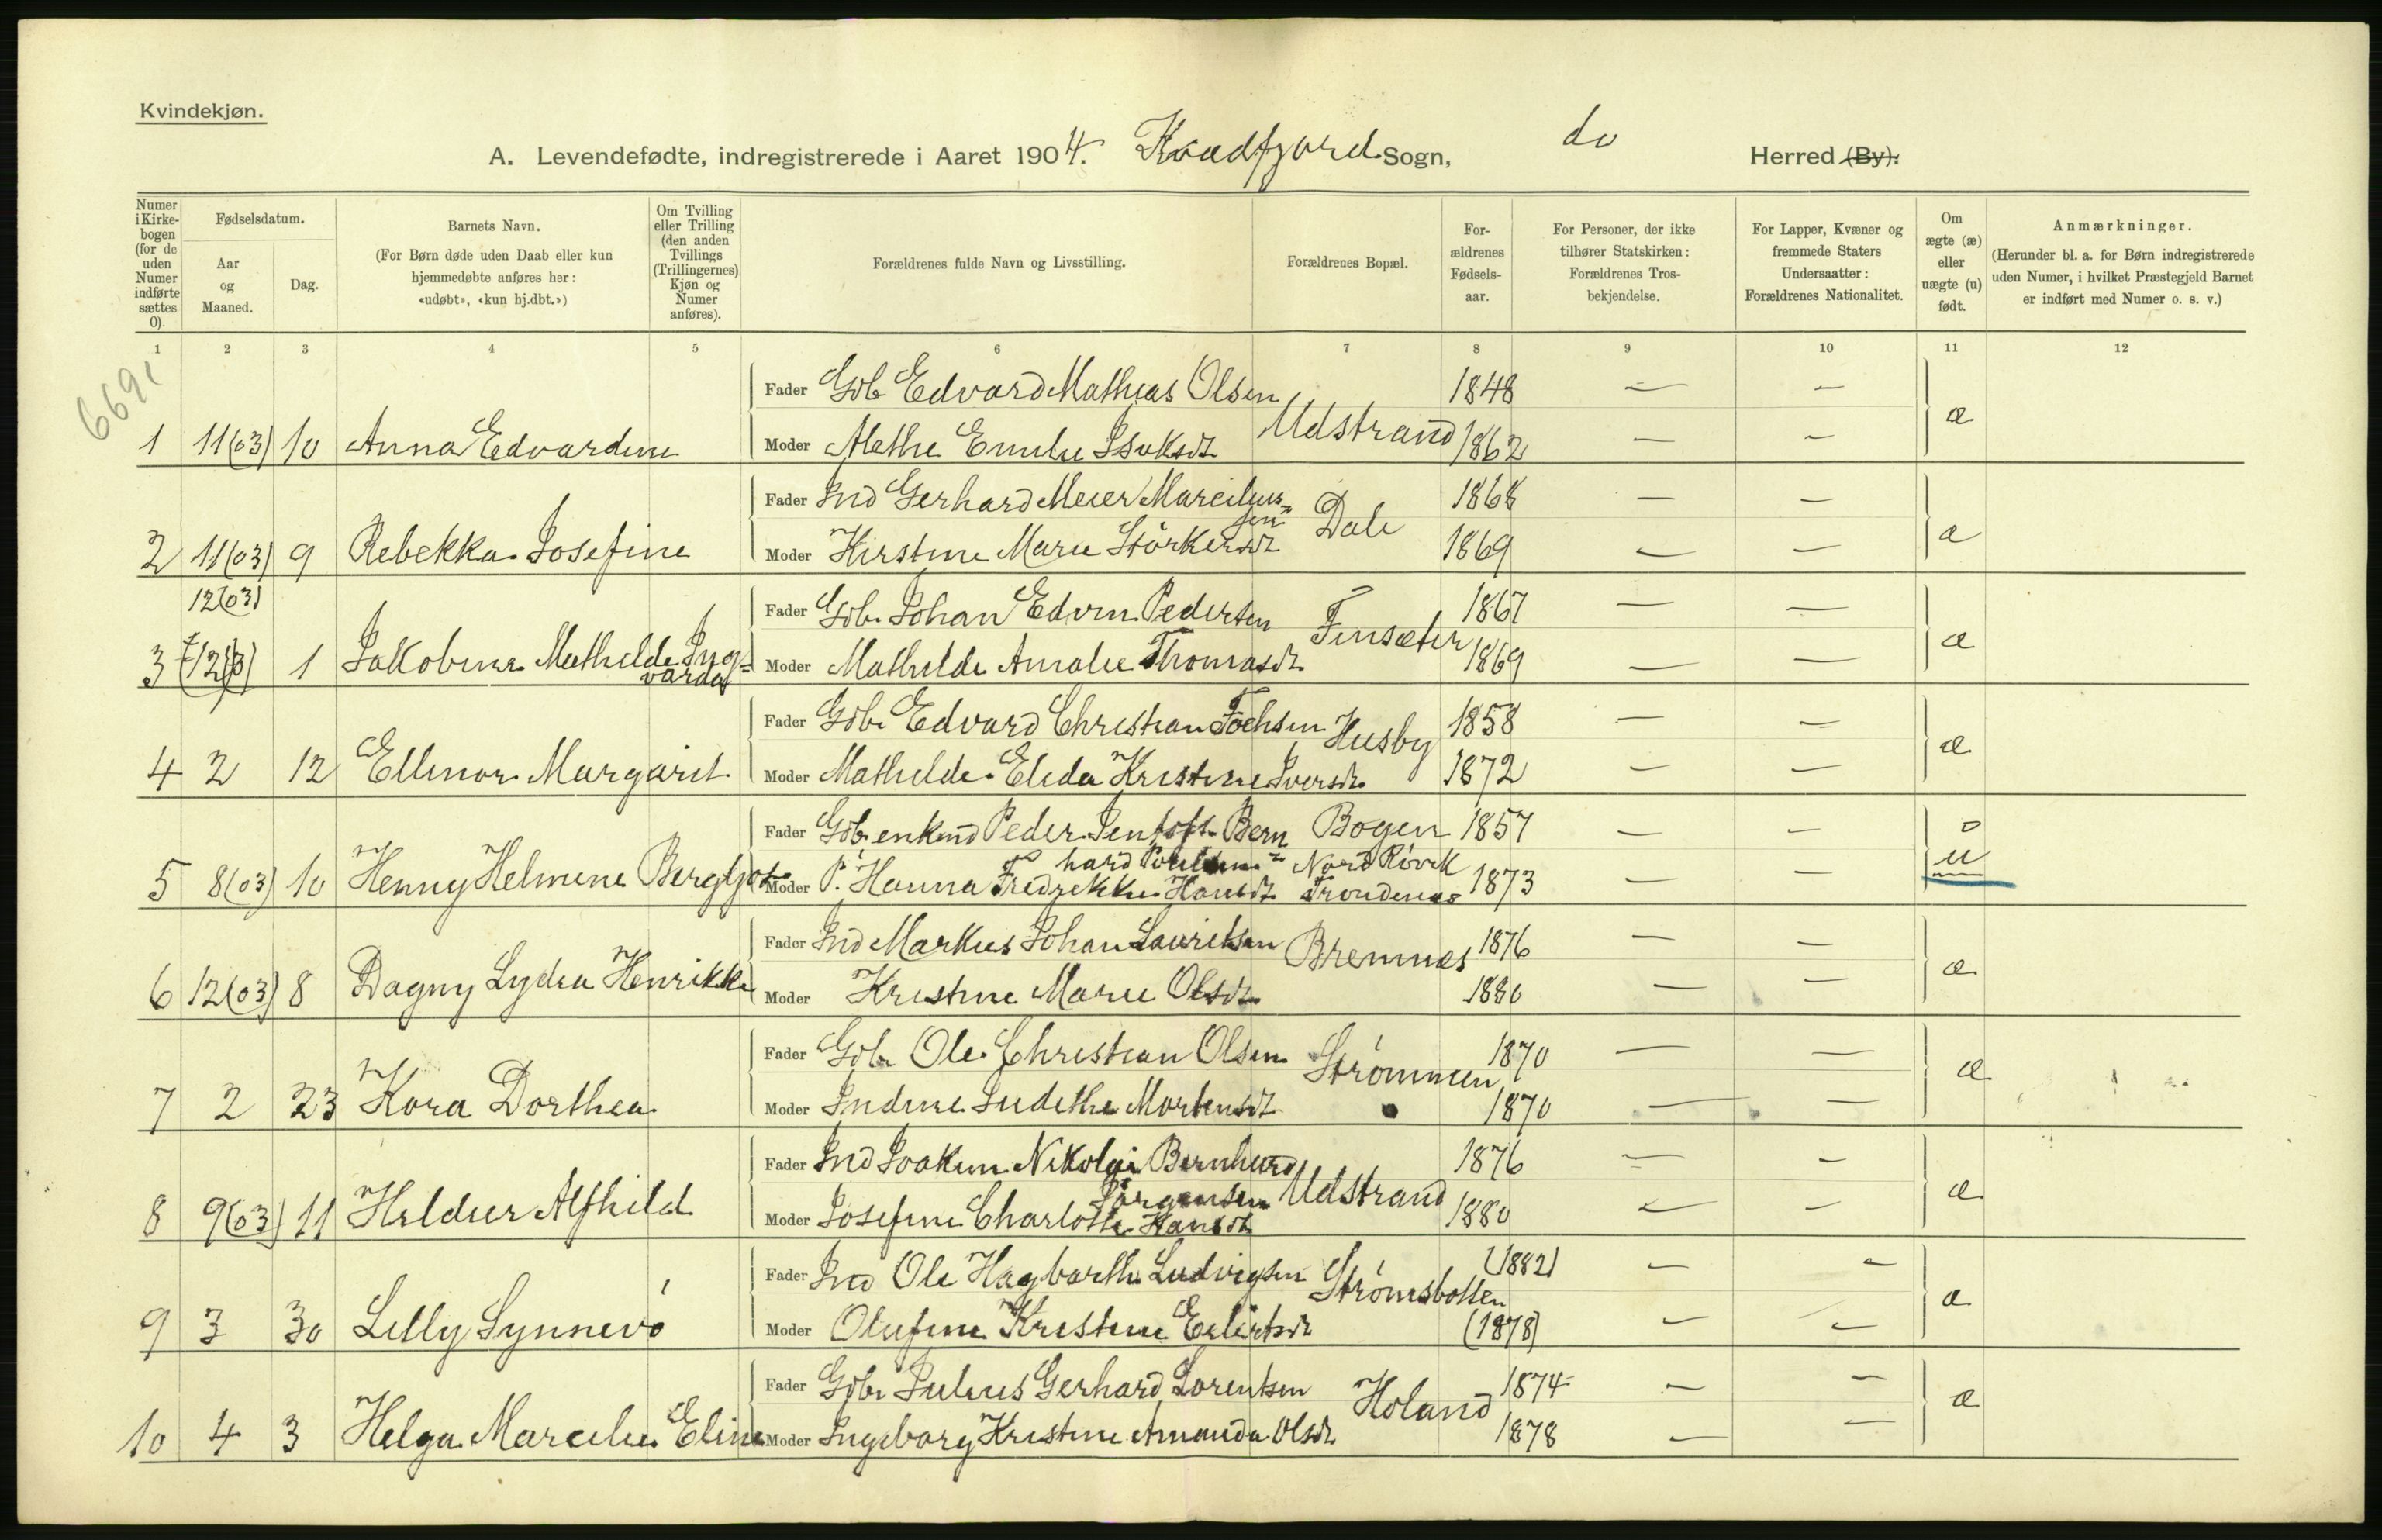 Kvindekjøn.
A. Levendefødte, indregistrerede i Aaret 1904. Kvædfjord Sogn, do Herred (By):
Numer i Kirkebogen (for de uden Numer indførte sættes 0).
Fødselsdatum.
Aar og Maaned.
Dag.
Barnets Navn.
(For Børn døde uden Daab eller kun hjemmedøbte anføres her: «udøbt», «kun hj.dbt.»)
Om Tvilling eller Trilling (den anden Tvillings (Trillingernes) Kjøn og Numer anføres).
Forældrenes fulde Navn og Livsstilling.
Forældrenes Bopæl.
Forældrenes Fødselsaar.
For Personer, der ikke tilhører Statskirken: Forældrenes Trosbekjendelse.
For Lapper, Kvæner og fremmede Staters Undersaatter: Forældrenes Nationalitet.
Om ægte (æ) eller uægte (u) født.
Anmærkninger.
(Herunder bl. a. for Børn indregistrerede uden Numer, i hvilket Præstegjeld Barnet er indført med Numer o. s. v.)
1 2 3 4 5 6 7 8 9 10 11 12
669
Fader Gdb Edvard Mathias Olsen 1848 — —
1 11(03) 10 Anna Edvardine Moder Methe Emelie Isaksdt Udstrand 1862 — — æ
Fader Ind Gerhard Meier Marcelius=sen 1868 — —
2 11(03) 9 Rebekka Josefine Moder Kirstine Marie Størkersdt Dale 1869 — — æ
12(03)
Fader Gdb. Johan Edvin Pedersen Finsæter 1867 — —
3 1 Jakobine Mathilde Ing=varda Moder Mathilde Amalie Thomasdt 1869 — — æ
Fader Gdb. Edvard Christian Fochsen Husby 1858 — —
4 2 12 Ellinor Margarit Moder Mathilde Elida Kristine Iversdt. 1872 — — æ
Fader Gdb. enkmd Peder Jentoft Bern=hard Poulsen Bogen 1857 — —
5 8(03) 10 Henny Helmine Bergljot Moder P. Hanna Fredrekke Hansdt Nord Rövik Trondenæs 1873 — — u
Fader Ind Markus Johan Lauritsen Bremnes 1876 — —
6 12(03) 8 Dagny Lydia Henrikke Moder Kristine Marie Olsdt. 1880 — — æ
Fader Gdb. Ole Christian Olsen Strømmen 1870 — —
7 2 23 Kora Dorthea Moder Indine Judithe Mortensdt 1870 — — æ
Fader Ind Joakim Nikolai Bernhard Jørgensen 1876 — —
8 9(03) 11 Hildur Alfhild Moder Josefine Charlotte Hansdt Udstrand 1880 — — æ
Fader Ind Ole Hagbarth Ludvigsen Strømsbotten (1882) — —
9 3 30 Lilly Synnevö Moder Olufine Kristine Eilertsdt (1878) — — æ
Fader Gdb. Julius Gerhard Lorentsen Holand 1874 — —
10 4 3 Helga Marcelie Eline Moder Ingeborg Kristine Amanda Olsdt. 1878 — — æ